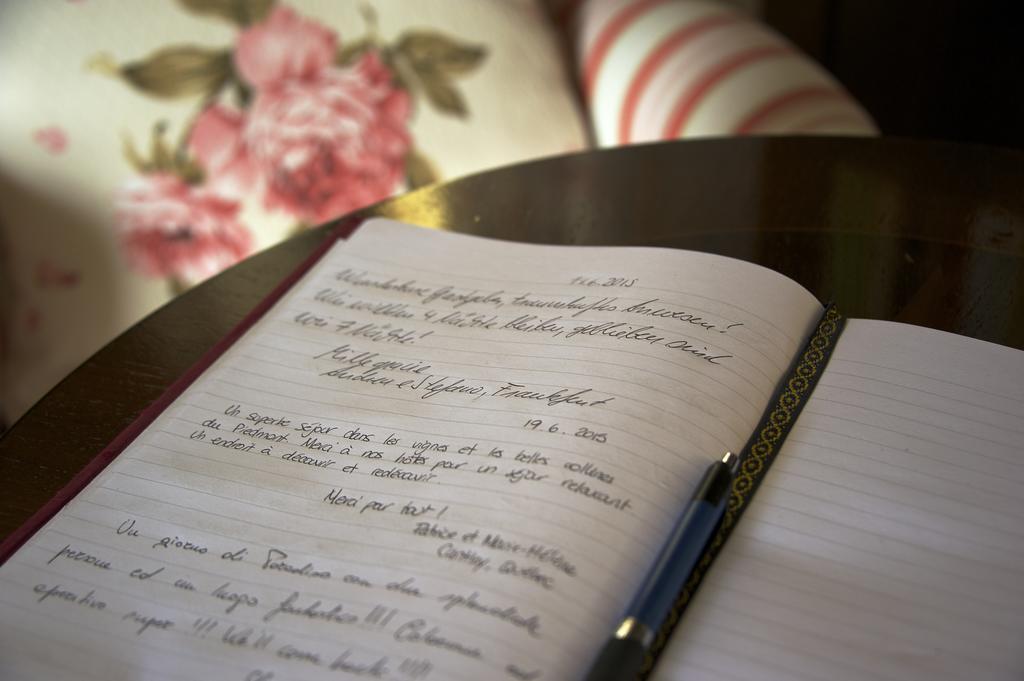 11.6.2015
Wunderbare Gastgeber, traumhaftes Anwesen!
Wir wollten 4 Nächte bleiben, geblieben sind
wir 7 Nächte!
Mille grazie
Andrea e Stefano, Frankfurt
19.6.2015
Un superbe séjour dans les vignes et les belles collines
du Piedmont. Merci à nos hôtes pour un séjour relaxant.
Un endroit à découvrir et redécouvrir.
Merci par tout!
Patrice et Marie-Hélène
Québec
Un giorno di Paradiso con due splendide
persone ed un luogo fantastico!!!!
aperitivo super!!! We'll come back!!!!